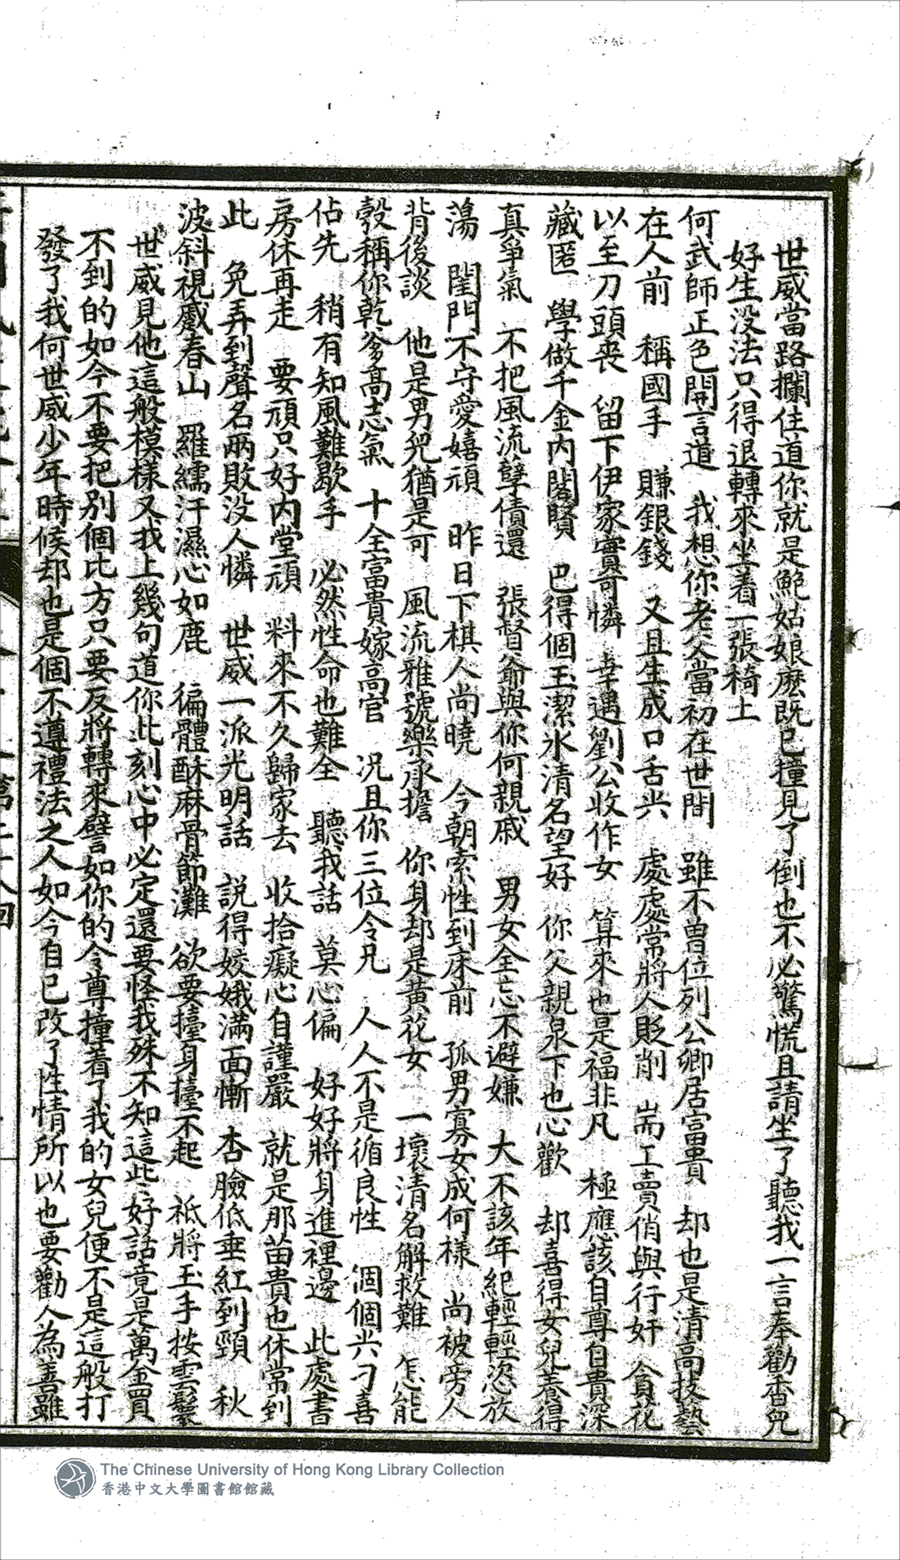 世威當路攔住道你就是鮑姑娘麽既已撞見了倒也不必驚慌且請坐了聽我一言奉勸香兒
好生没法只得退轉來坐着一張椅上
何武師正色開言道　我想你老父當初在世間　雖不曾位列公卿居富貴　却也是清高技藝
在人前　稱國手　賺銀錢　又且生成口舌尖　處處常將人貶削　耑工賣俏與行奸　貪花
以至刀頭喪　留下伊家實可憐　幸遇劉公收作女　算來也是福非凡　極應該自尊自貴深
藏匿　學做千金内閣賢　巴得個玉潔氷清名望好　你父親泉下也心歡　却喜得女兒養得
真爭氣　不把風流孽債還　張督爺與你何親戚　男女全忘不避嫌　大不該年紀輕輕恣放
蕩　閨門不守愛嬉頑　昨日下棋人尚曉　今朝索性到床前　孤男寡女成何樣　尚被旁人
背後談　他是男兒猶是可　風流雅號樂承擔　你身却是黃花女　一壞清名解救難　怎能
彀稱你乾爹高志氣　十全富貴嫁高官　况且你三位令兄　人人不是循良性　個個尖刁喜
佔先　稍有知風難歇手　必然性命也難全　聽我話　莫心偏　好好將身進裡邊　此處書
房休再走　要頑只好内堂頑　料來不久歸家去　收拾癡心自謹嚴　就是那苗貴也休常到
此　免弄到聲名兩敗没人憐　世威一派光明話　說得姣娥滿面慚　杏臉低垂紅到頸　秋
波斜視蹙春山　羅繻汗濕心如鹿　徧體酥麻骨節灘　欲要擡身擡不起　祗將玉手按雲鬟
世威見他這般模樣又找上幾句道你此刻心中必定還要怪我殊不知這些好話竟是萬金買
不到的如今不要把别個比方只要反將轉來譬如你的令尊撞着了我的女兒便不是這般打
發了我何世威少年時候却也是個不遵禮法之人如今自己改了性情所以也要勸人為善雖
The Chinese University of Hong Kong Library Collection
香港中文大學圖書館館藏